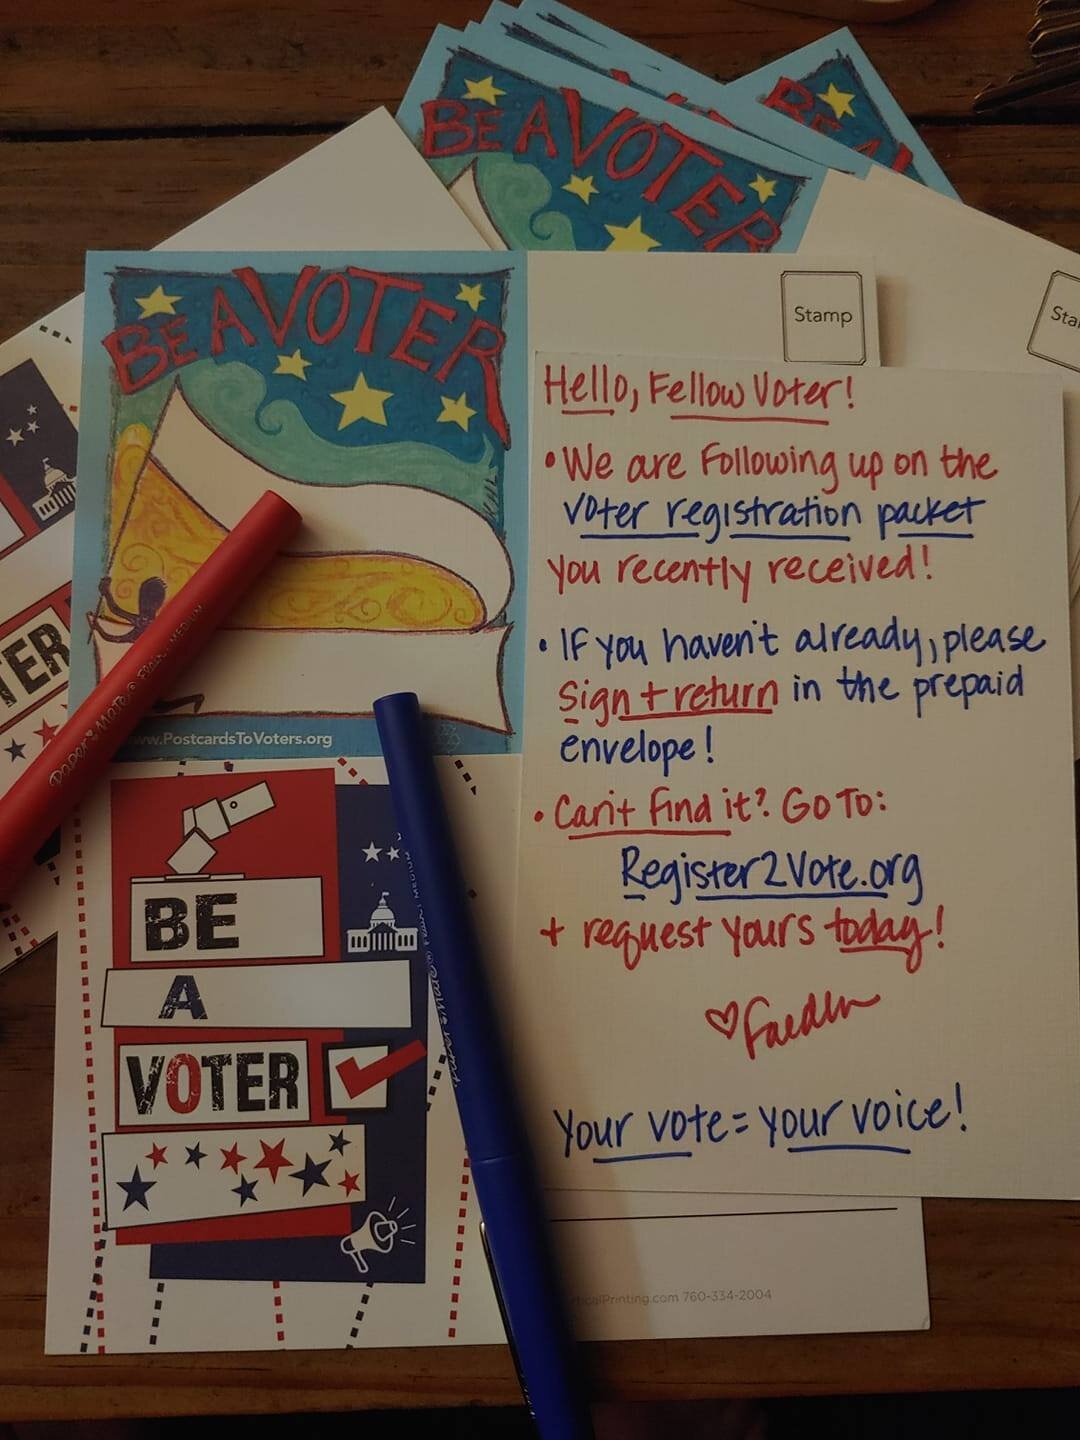 BE A VOTER
BE A
Stamp
BE A VOTER
Stamp
Hello, Fellow Voter!
• We are following up on the
voter registration packet
you recently received!
• If you haven't already, please
sign + return in the prepaid
envelope!
• Can't find it? Go To:
Register2Vote.org
+ request yours today!
♡ Faeden
Your vote = your voice!
www.PostcardsToVoters.org
Paper Mate® Flair MEDIUM
TER
BE
A
VOTER
Paper Mate® Flair MEDIUM
Printing.com 760-334-2004